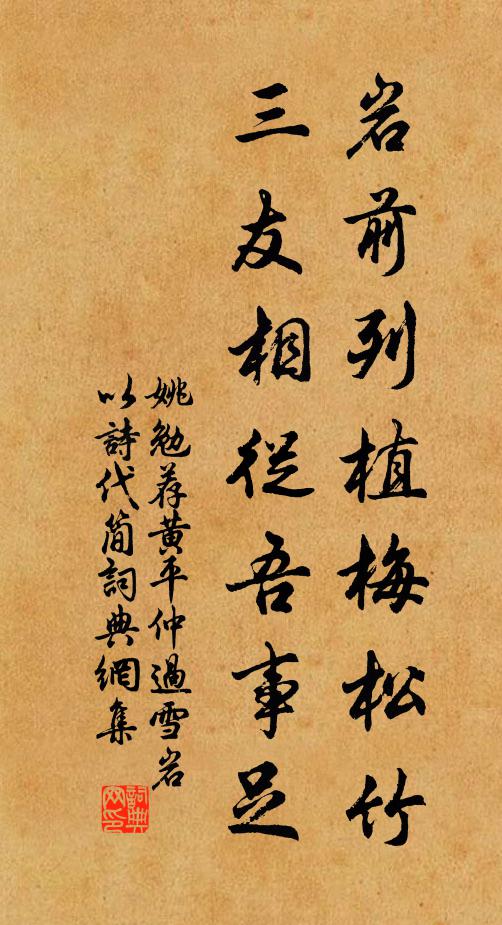 岩前列植梅松竹
三友相從吾事足
姚勉荐黄平仲過雪岩
以詩代简詞典網集
詞典網印